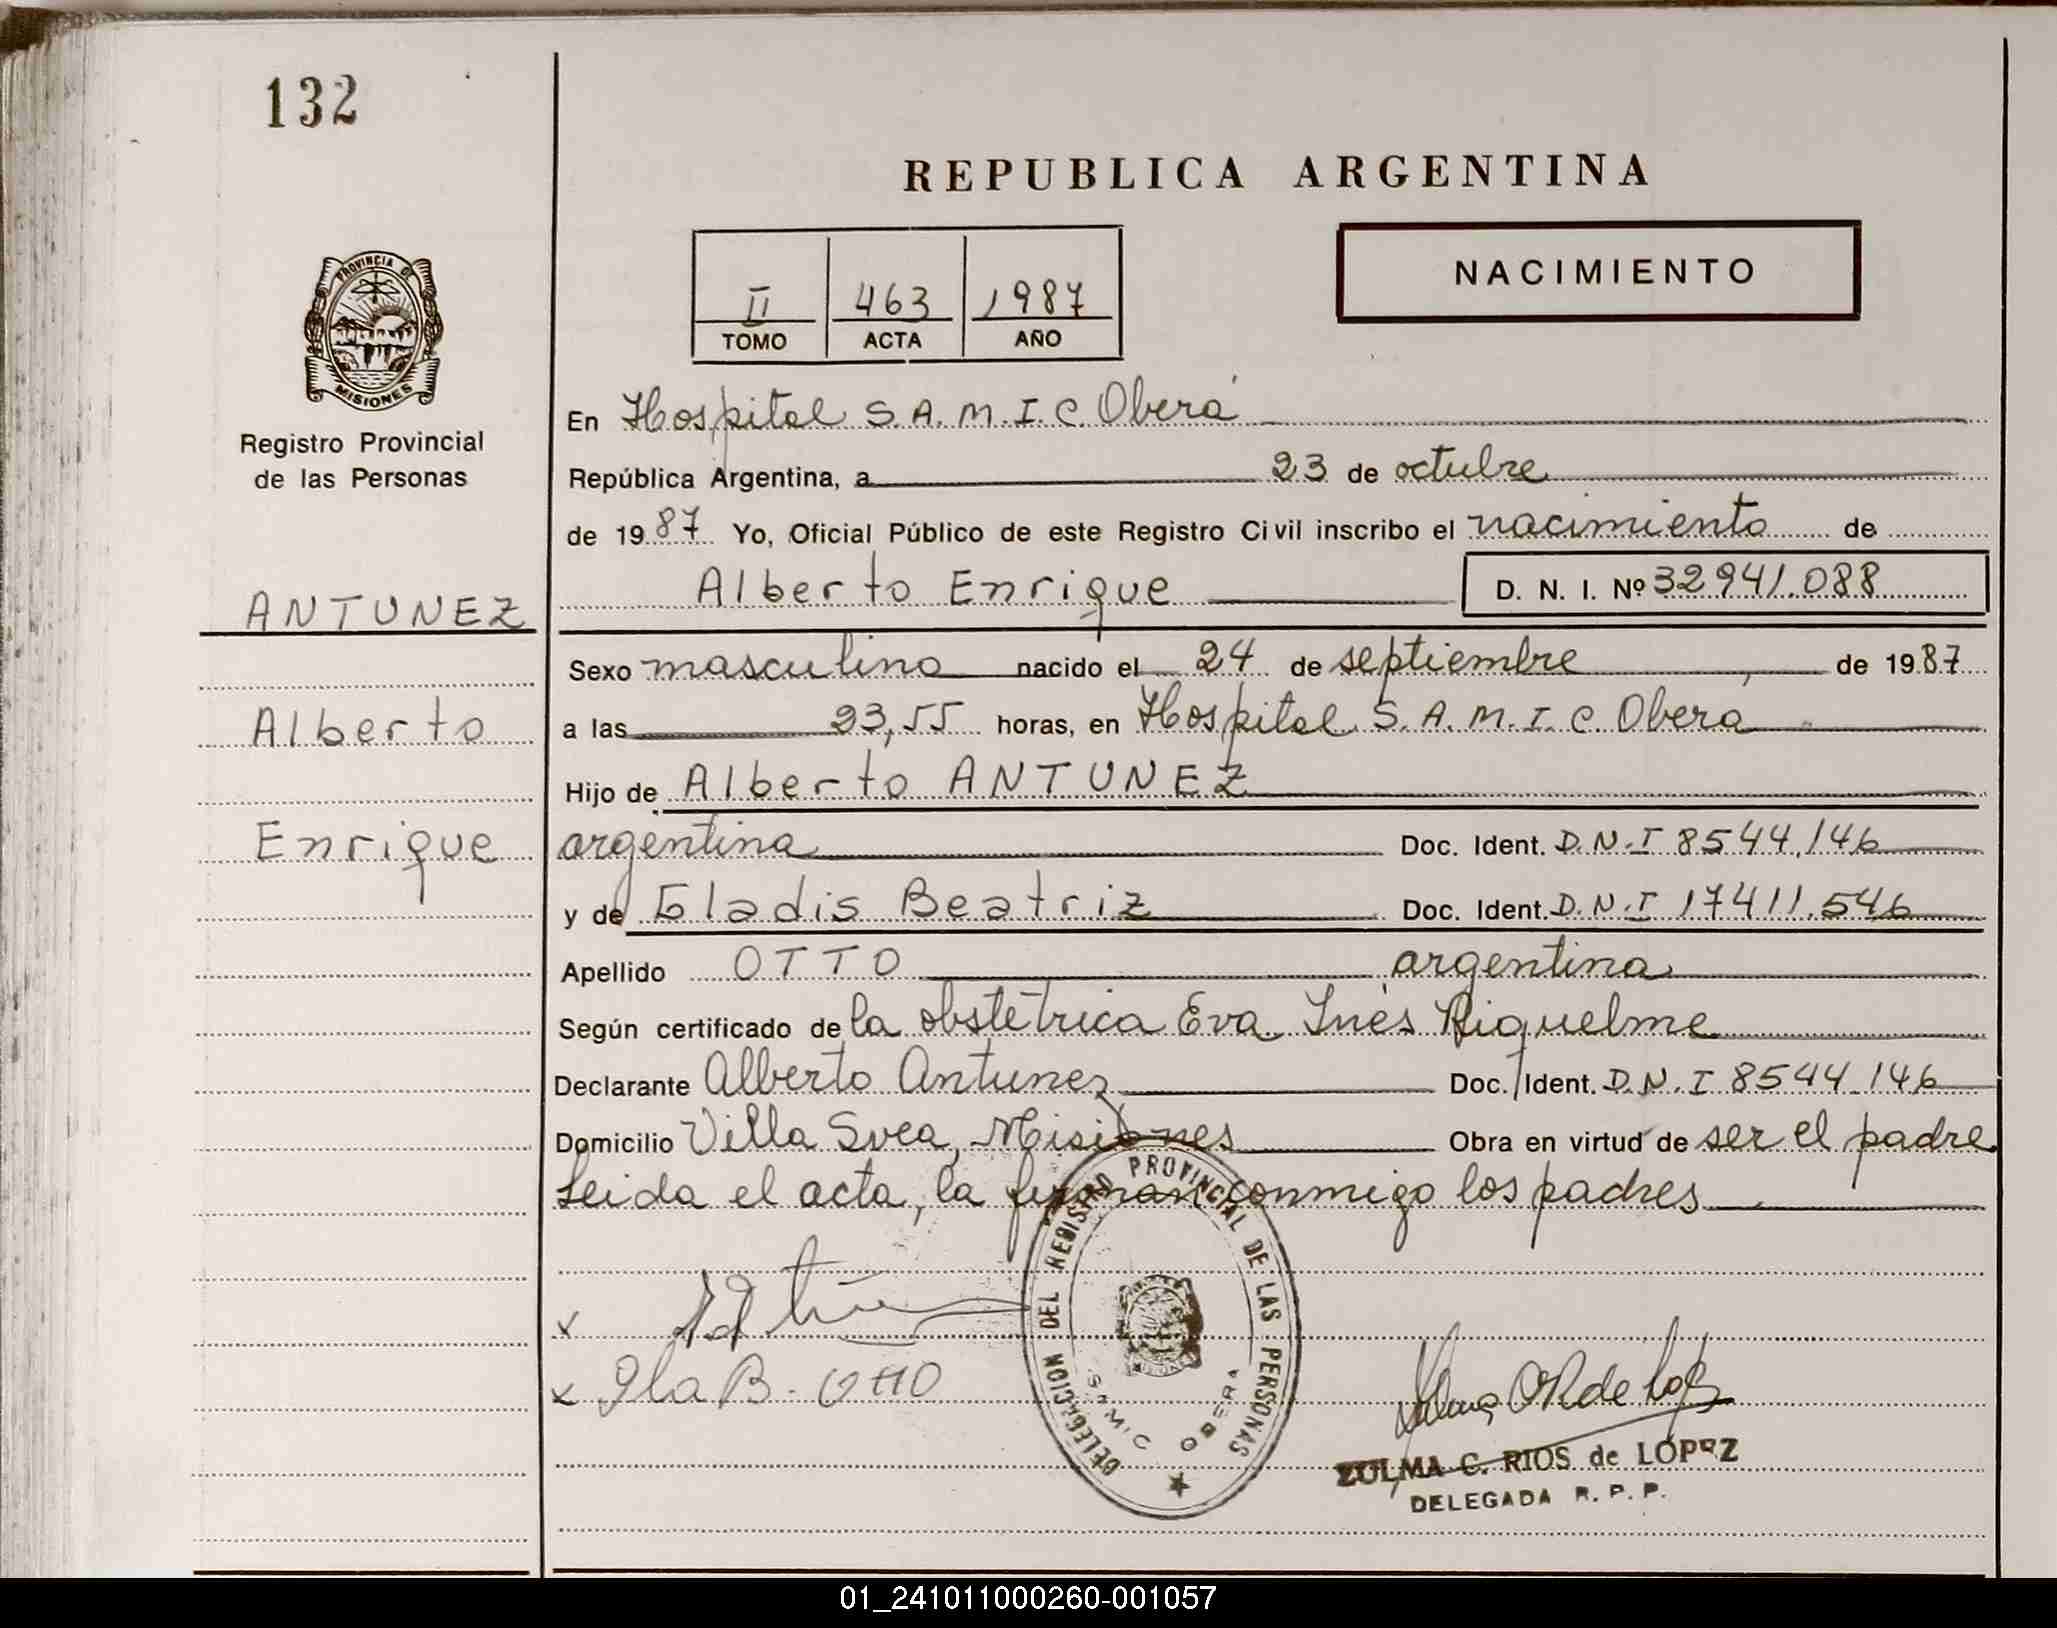 132
REPUBLICA ARGENTINA
NACIMIENTO
II 463 1987
TOMO ACTA AÑO
PROVINCIA DE
MISIONES
Registro Provincial
de las Personas
ANTUNEZ
Alberto
Enrique
En Hospital S.A.M.I.C. Oberá
República Argentina, a 23 de octubre
de 1987 Yo, Oficial Público de este Registro Civil inscribo el nacimiento de
Alberto Enrique D. N. I. Nº 32941.088
Sexo masculino nacido el 24 de septiembre de 1987
a las 23,55 horas, en Hospital S.A.M.I.C. Oberá
Hijo de Alberto ANTUNEZ
argentina Doc. Ident. D.N.I 8544.146
y de Gladis Beatriz Doc. Ident. D.N.I 17411.546
Apellido OTTO argentina
Según certificado de la obstétrica Eva Inés Riquelme
Declarante Alberto Antunez Doc. Ident. D.N.I 8544.146
Domicilio Villa Svea, Misiones Obra en virtud de ser el padre
Leida el acta, la firman conmigo los padres
DELEGACION DEL REGISTRO PROVINCIAL DE LAS PERSONAS
SAMIC OBERA
x
x Gla B. OTTO
ZULMA C. RIOS de LÓPEZ
DELEGADA R. P. P.
01_241011000260-001057